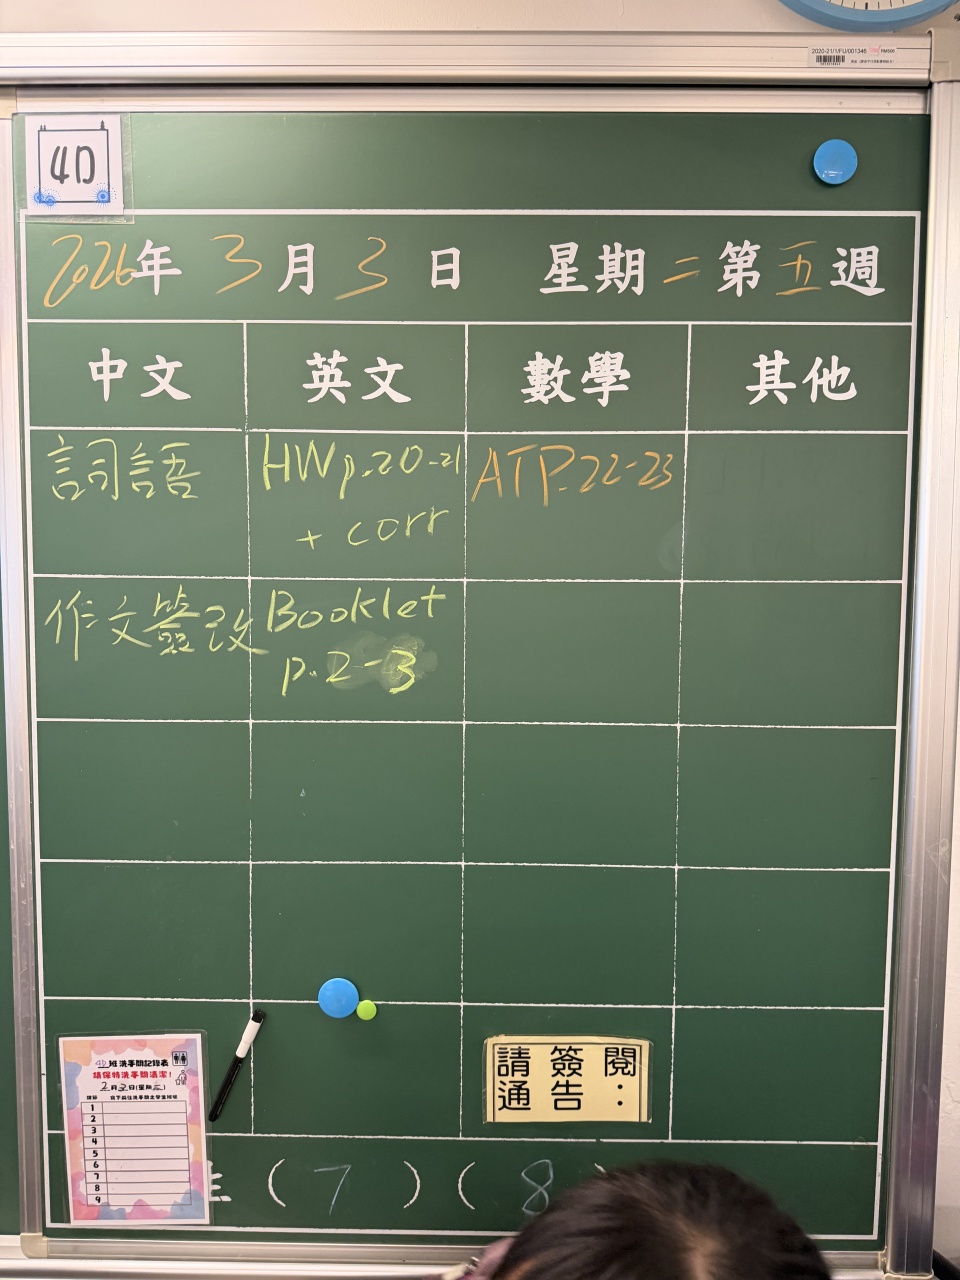 2020-21/1/FU/001346 RM506
4D
2026年 3月 3日 星期二 第五週
中文 英文 數學 其他
詞語 HW p.20-21 + corr ATP.22-23
作文簽改 Booklet p.2-3
4D班洗手間記錄表
請保持洗手間清潔!
請簽閱
通告：
1
2
3
4
5
6
7
8
9
( 7 ) ( 8 )